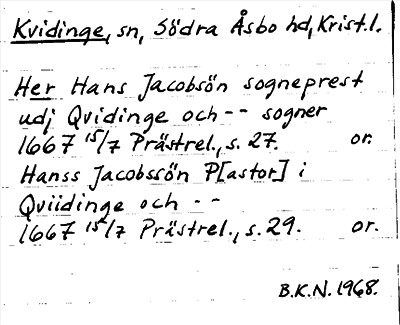 Kvidinge, sn, Södra Åsbo hd, Krist.l.
Her Hans Jacobsön sogneprest
udj Qvidinge och -- sogner
1667 15/7 Prästrel., s. 27. or.
Hanss Jacobssön P[astor] i
Qviidinge och --
1667 15/7 Prästrel., s. 29. or.
B.K.N. 1968.